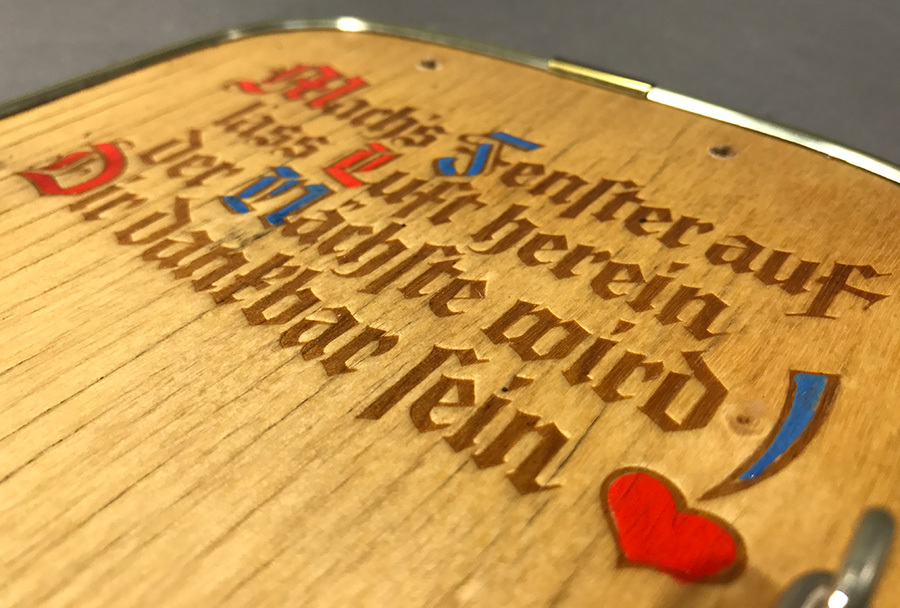 Mach's Fenſter auf
lass Luft herein
der Nächſte wird
Dir dankbar ſein